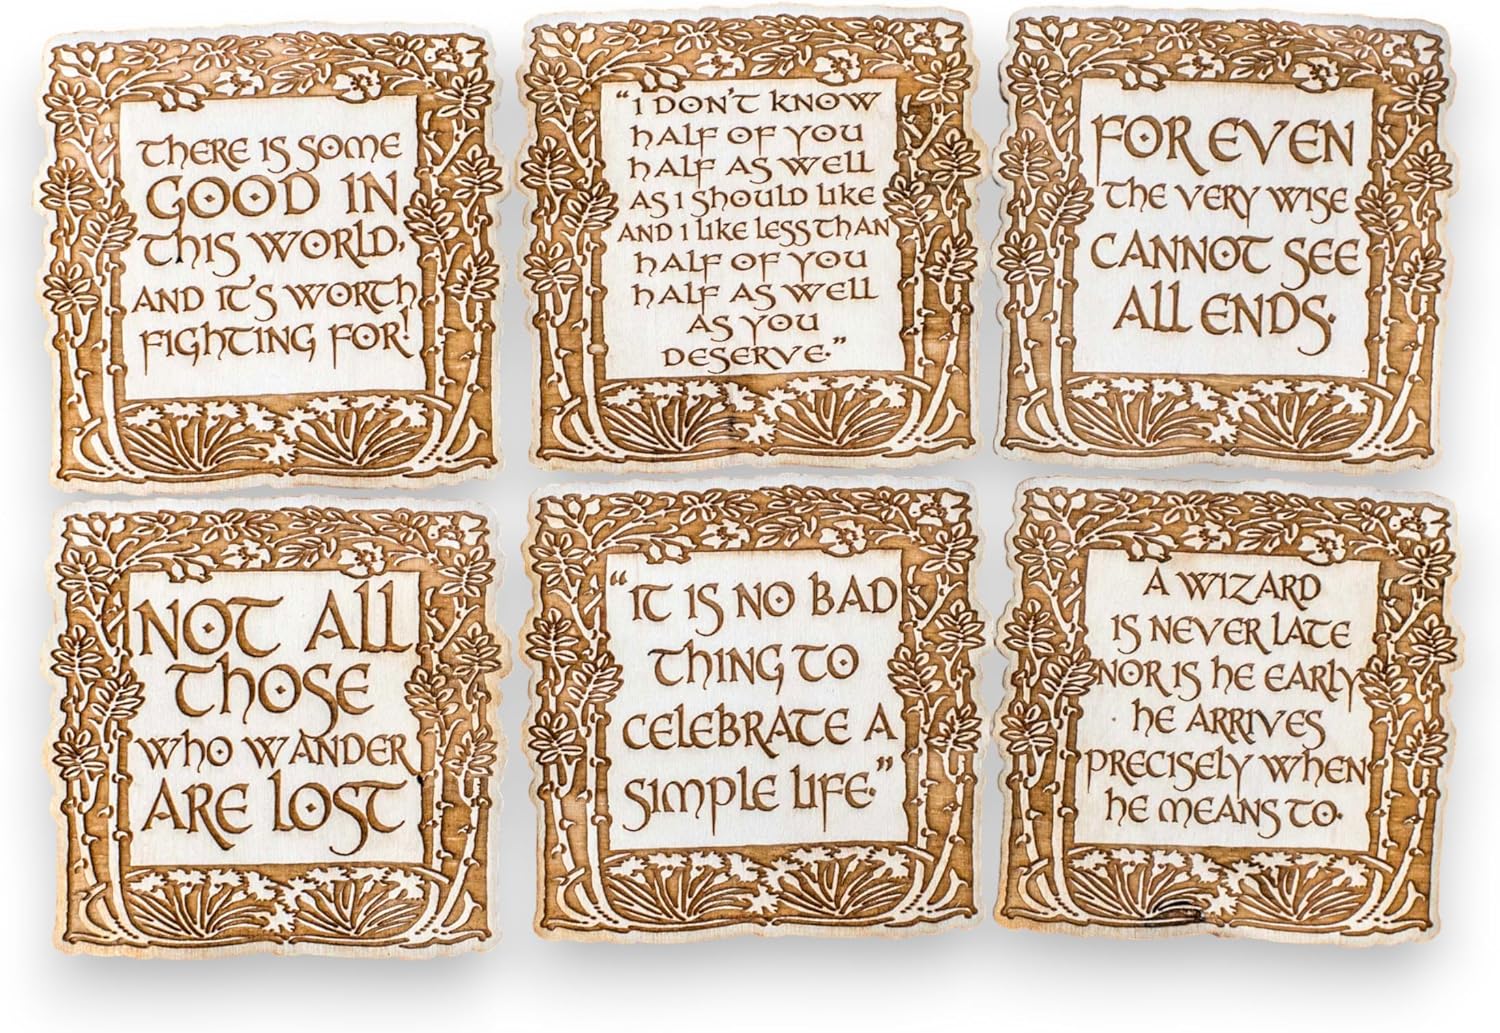 THERE IS SOME
GOOD IN
THIS WORLD,
AND IT'S WORTH
FIGHTING FOR!
"I DON'T KNOW
HALF OF YOU
HALF AS WELL
AS I SHOULD LIKE
AND I LIKE LESS THAN
HALF OF YOU
HALF AS WELL
AS YOU
DESERVE."
FOR EVEN
THE VERY WISE
CANNOT SEE
ALL ENDS.
NOT ALL
THOSE
WHO WANDER
ARE LOST
"IT IS NO BAD
THING TO
CELEBRATE A
SIMPLE LIFE."
A WIZARD
IS NEVER LATE
NOR IS HE EARLY
HE ARRIVES
PRECISELY WHEN
HE MEANS TO.